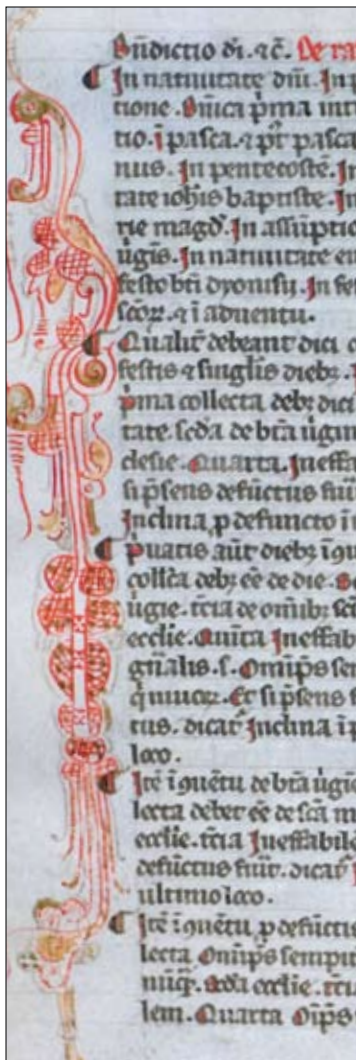 Bn̄dictio di. ⁊c̄. De ra
In natiuitate dn̄i. In
tione. Dn̄ica p̄ma int
tio. ī pasca. ⁊ p̄t pasca
nus. In pentecostē. In
tate ioh̄is baptiste. In
rie magd̄. In assūptio
ūgis. In natiuitate eiu
festo bt̄i dyonisy. In fe
sc̄oꝝ. ⁊ ī aduentu.
Qualit̄ debeant dici
festis ⁊ singl̄is dieb;.
p̄ma collecta deb; dici
tate. sc̄da de bt̄a ūgin
clesie. Quarta. Ineffa
si p̄sens defūctus fuīt
Inclina, p defuncto ī
Puatis aūt dieb; ī
coll̄ca deb; ēē de die. S
ūgīe. t̄cia de om̄ib; sc̄
eccl̄ie. Quīta Ineffab
gn̄alis. s. Om̄ip̄s sem
q̄ uiuoꝝ. Et si p̄sens
tus. dicat̄ Inclina ī
loco.
Itē ī 9uētu de bt̄a ūgīe
lecta debet ēē de sc̄a m
eccl̄ie. t̄cia Ineffabile
defūctus fuīt. dicat̄
ultimo loco.
Itē ī 9uētu, p defūctis
lecta Om̄ip̄s sempit
sc̄da eccl̄ie. t̄ciā
lem. Quarta Oīp̄s